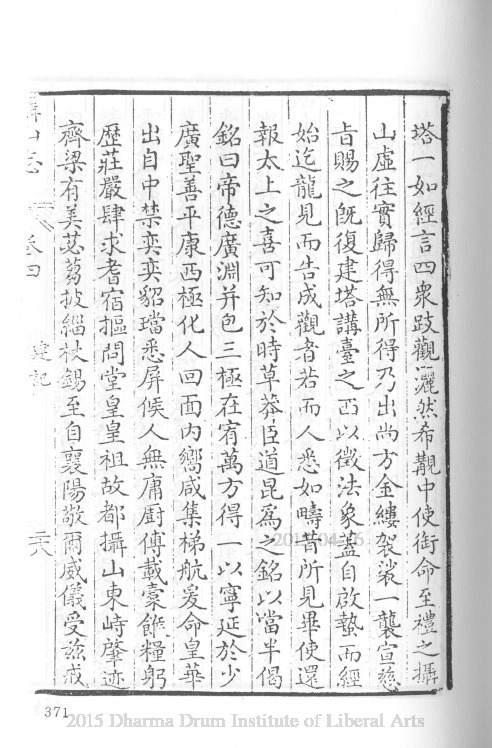 塔一如經言四衆跂觀灑然希覯中使銜命至禮之攝
山虛往實歸得無所得乃出尚方金縷袈裟一襲宣慈
旨賜之旣復建塔講臺之西以徵法象蓋自啟蟄而經
始迄龍見而告成觀者若而人悉如疇昔所見畢使還
報太上之喜可知於時草莽臣道昆爲之銘以當半偈
銘曰帝德廣淵并包三極在宥萬方得一以寧延於少
廣聖善平康西極化人回面內嚮咸集梯航爰命皇華
出自中禁奕奕貂璫悉屏候人無庸廚傳載橐餱糧躬
歷莊嚴肆求耆宿摳問堂皇皇祖故都攝山東峙肇迹
齊梁有美苾蒭披緇杖錫至自襄陽敬爾威儀受茲戒
山志
卷四
建記
三八
371
2015 Dharma Drum Institute of Liberal Arts